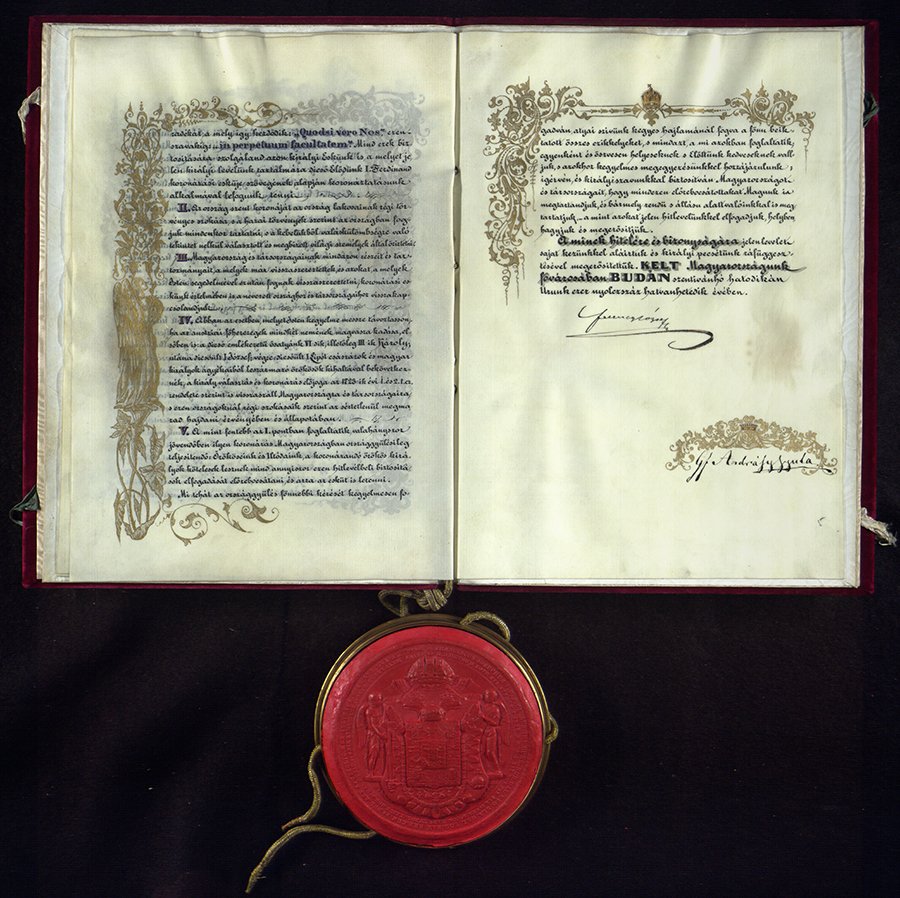 radékát, a mely így kezdődik: „Quodsi vero Nos" eren-
szavakig: „in perpetuum facultatem". Mind erek biz-
tosítására szolgáland azon királyi eskünk is a melyet je-
len királyi levelünk tartalmára dicső Elődünk I. Ferdinand
koronázási esküje szövegének alapján koronáztatásunk
alkalmával lefogunk tenni
II. Az ország szent koronáját az ország lakosainak régi tör-
vényes szokása, s a hazai törvények szerint az országban fog-
juk mindenkor tartatni, s a kebelükből valláskülönbségre való
tekintet nélkül választott és megbízott világi személyek által őriztetni
III. Magyarország és társországainak mindazon részeit és tar-
tományait, a melyek már visszaszereztettek, és azokat, a melyek
Isten segedelmével ezután fognak visszaszereztetni, koronázási es-
künk értelmében is, a nevezett országhoz és társországaihoz visszakap-
csolandjuk
IV. Abban az esetben, melyet Isten kegyelme messze távoztasson,
ha az austriai főherczegek mindkét nemének magvaszakadása, el-
sőben is: a dicső emlékezetű ősatyánk VI-dik illetőleg III-ik Károly,
utána dicsőült I József, végre dicsőült I Lipót császárok és magyar
királyok ágyékaiból leszármazó örökösök kihaltával bekövetkez-
nék, a király választás és koronázás előjoga az 1723-ik évi 1. és 2. t. cz.
rendelete szerint is visszaszáll Magyarországra és társországaira,
s ezen országoknál régi szokásaik szerint az sértetlenül megma-
rad hajdani érvényében és állapotában
V. A mint fentebb az I. pontban foglaltatik, valahányszor
jövendőben ilyen koronázás Magyarországban országgyűlésileg
teljesítendő: Örököseink és Utódaink, a koronázandó örökös kirá-
lyok kötelesek lesznek mind annyiszor ezen hitlevélbeli biztosítá-
sok elfogadását előrebocsátani és arra az esküt is letenni.
Mi tehát az országgyűlés fönnebbi kérését kegyelmesen fo-
gadván, atyai szívünk kegyes hajlamánál fogva a fönn beik-
tatott összes czikkhelyeket, s mindazt, a mi azokban foglaltatik,
egyenként és összvesen helyeseknek s Előttünk kedveseknek vall-
juk, s azokhoz kegyelmes megegyezésünkkel hozzájárulunk;
igérvén, és királyi szavunkkal biztosítván Magyarországot
és társországait, hogy mindezen előrebocsátottakat Magunk is
megtartandjuk, és bármely rendű s állású alattvalóinkkal is meg-
tartatjuk – a mint azokat jelen hitlevelünkkel elfogadjuk, helyben
hagyjuk és megerősítjük.
A minek hitelére és bizonyságára jelen levelet
saját kezünkkel aláírtuk és királyi pecsétünk ráfüggesz-
tésével megerősítettük. KELT Magyarországunk
fővárosában BUDÁN szentivánhó hatodikán
Urunk ezer nyolczszáz hatvanhetedik évében.
Ferencz József
Gf Andrássy Gyula